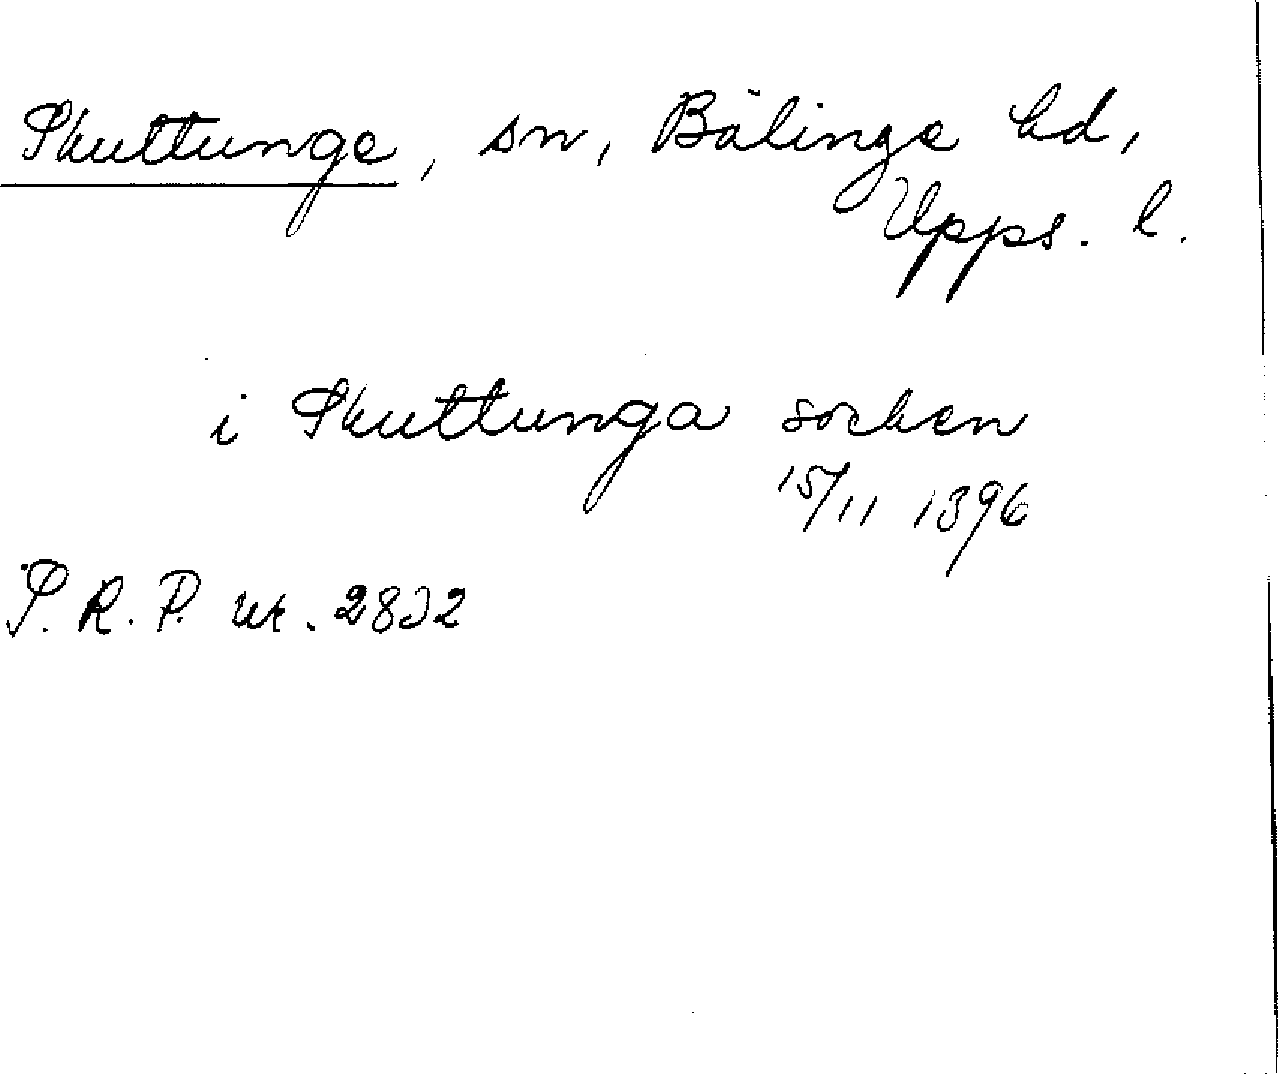 Skuttunge, sn, Bälinge hd,
Upps. l.
i Skuttunga socken
15/11 1396
S. R. P. nr. 2832